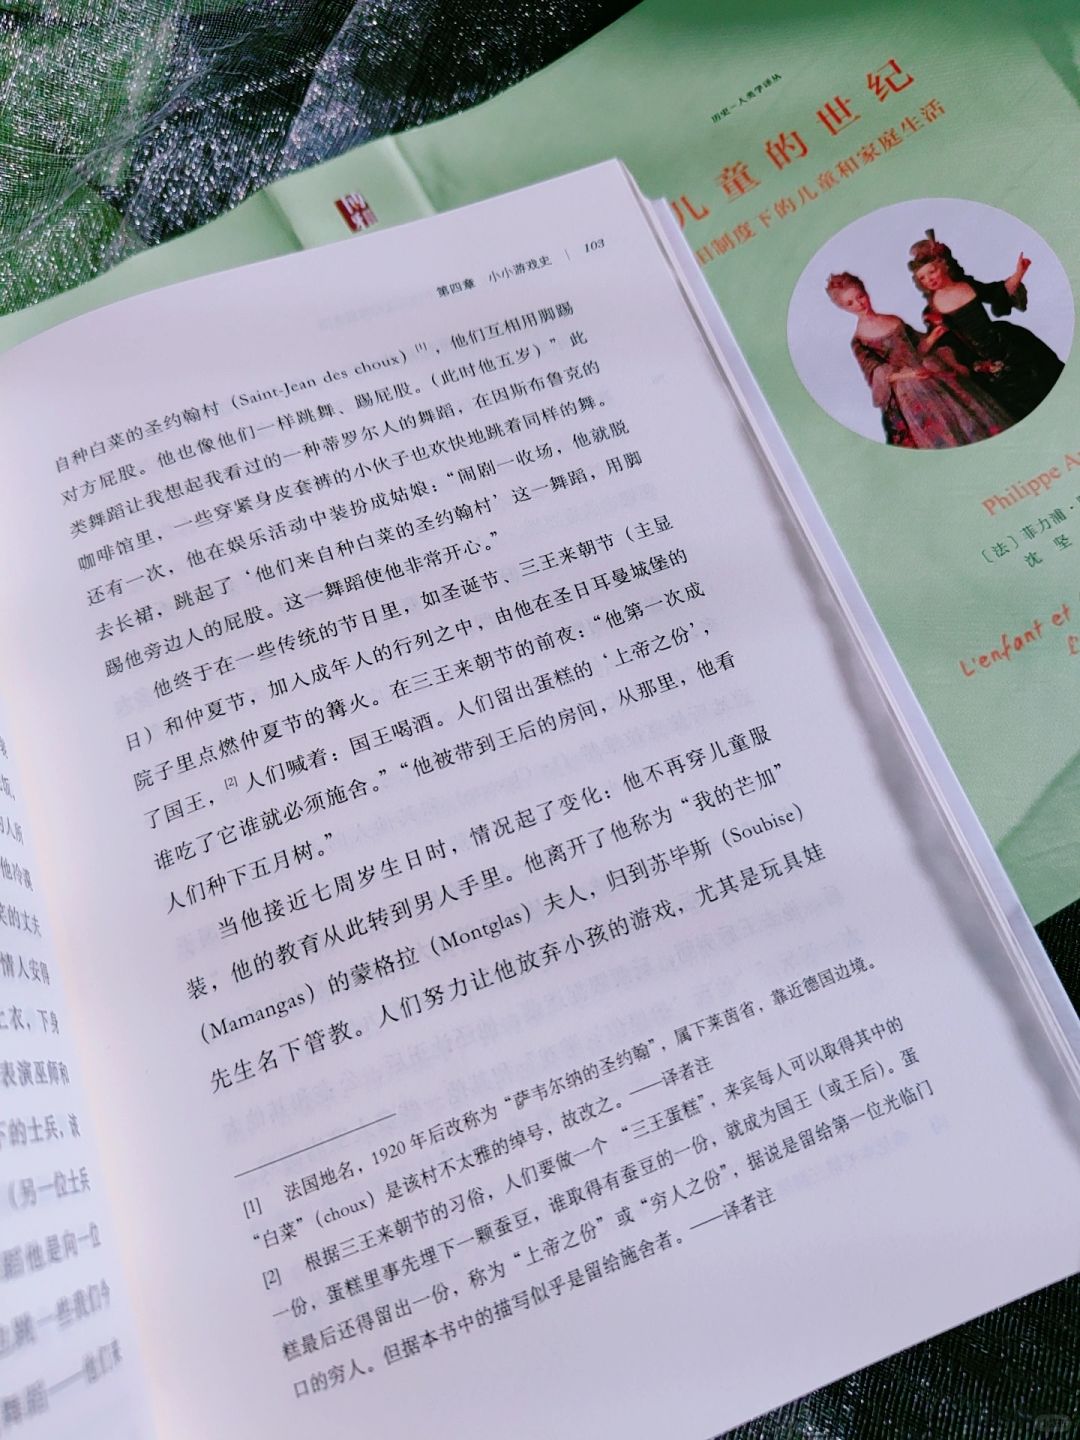 历史-人类学译丛
儿童的世纪
旧制度下的儿童和家庭生活
Philippe
〔法〕菲力浦·
沈 坚
L'enfant et
第四章 小小游戏史 | 103
自种白菜的圣约翰村（Saint-Jean des choux）[1]，他们互相用脚踢
对方屁股。他也像他们一样跳舞、踢屁股。（此时他五岁）”此
类舞蹈让我想起我看过的一种蒂罗尔人的舞蹈，在因斯布鲁克的
咖啡馆里，一些穿紧身皮套裤的小伙子也欢快地跳着同样的舞。
还有一次，他在娱乐活动中装扮成姑娘：“闹剧一收场，他就脱
去长裙，跳起了‘他们来自种白菜的圣约翰村’这一舞蹈，用脚
踢他旁边人的屁股。这一舞蹈使他非常开心。”
他终于在一些传统的节日里，如圣诞节、三王来朝节（主显
日）和仲夏节，加入成年人的行列之中，由他在圣日耳曼城堡的
院子里点燃仲夏节的篝火。在三王来朝节的前夜：“他第一次成
了国王，[2]人们喊着：国王喝酒。人们留出蛋糕的‘上帝之份’，
谁吃了它谁就必须施舍。”“他被带到王后的房间，从那里，他看
人们种下五月树。”
当他接近七周岁生日时，情况起了变化：他不再穿儿童服
装，他的教育从此转到男人手里。他离开了他称为“我的芒加”
（Mamangas）的蒙格拉（Montglas）夫人，归到苏毕斯（Soubise）
先生名下管教。人们努力让他放弃小孩的游戏，尤其是玩具娃
[1] 法国地名，1920年后改称为“萨韦尔纳的圣约翰”，属下莱茵省，靠近德国边境。
“白菜”（choux）是该村不太雅的绰号，故改之。——译者注
[2] 根据三王来朝节的习俗，人们要做一个“三王蛋糕”，来宾每人可以取得其中的
一份，蛋糕里事先埋下一颗蚕豆，谁取得有蚕豆的一份，就成为国王（或王后）。蛋
糕最后还得留出一份，称为“上帝之份”或“穷人之份”，据说是留给第一位光临门
口的穷人。但据本书中的描写似乎是留给施舍者。——译者注
的人所
他冷漠
笑的丈夫
情人安得
上衣，下身
表演巫师和
下的士兵，谈
（另一位士兵
蹈他是向一位
一些我们今
舞蹈——他们来